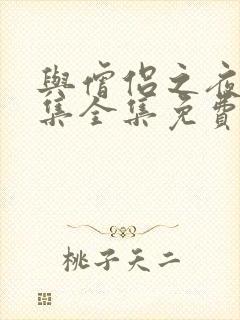 與僧侶之夜
集全集免費
桃子天二